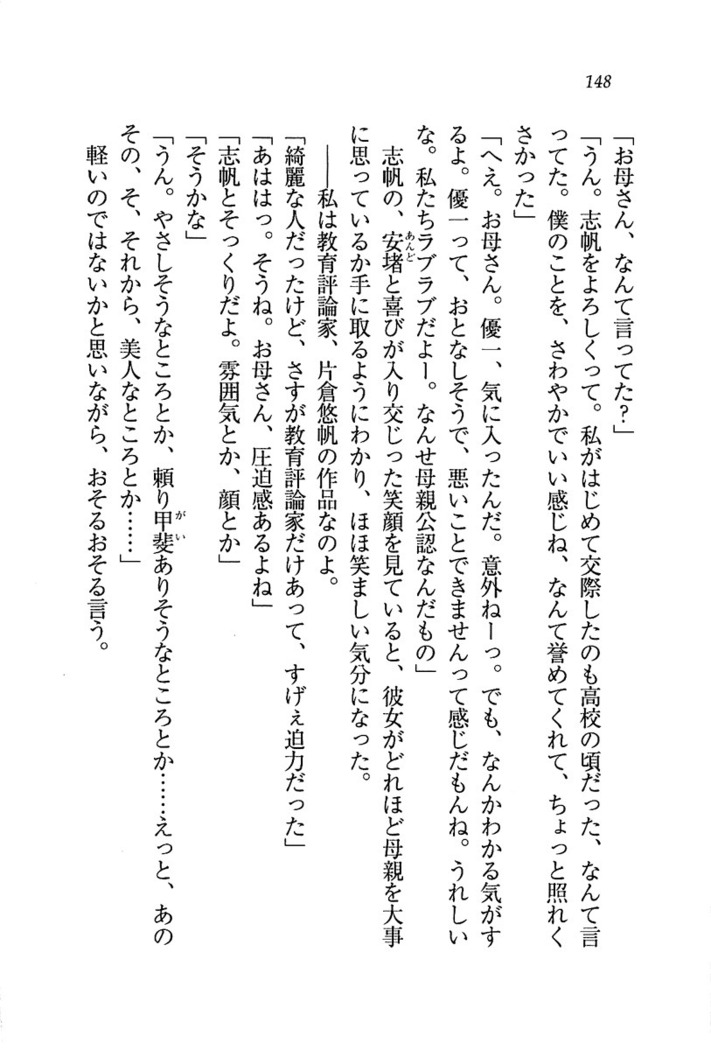 148
「お母さん、なんて言ってた？」
「うん。志帆をよろしくって。私がはじめて交際したのも高校の頃だった、なんて言
ってた。僕のことを、さわやかでいい感じね、なんて誉めてくれて、ちょっと照れく
さかった」
「へえ。お母さん。優一、気に入ったんだ。意外ねーっ。でも、なんかわかる気がす
るよ。優一って、おとなしそうで、悪いことできませんって感じだもんね。うれしい
な。私たちラブラブだよー。なんせ母親公認なんだもの」
　志帆の、安堵と喜びが入り交じった笑顔を見ていると、彼女がどれほど母親を大事
に思っているか手に取るようにわかり、ほほ笑ましい気分になった。
　――私は教育評論家、片倉悠帆の作品なのよ。
「綺麗な人だったけど、さすが教育評論家だけあって、すげぇ迫力だった」
「あははっ。そうね。お母さん、圧迫感あるよね」
「志帆とそっくりだよ。雰囲気とか、顔とか」
「そうかな」
「うん。やさしそうなところとか、頼り甲斐ありそうなところとか……えっと、あの
その、そ、それから、美人なところとか……」
　軽いのではないかと思いながら、おそるおそる言う。